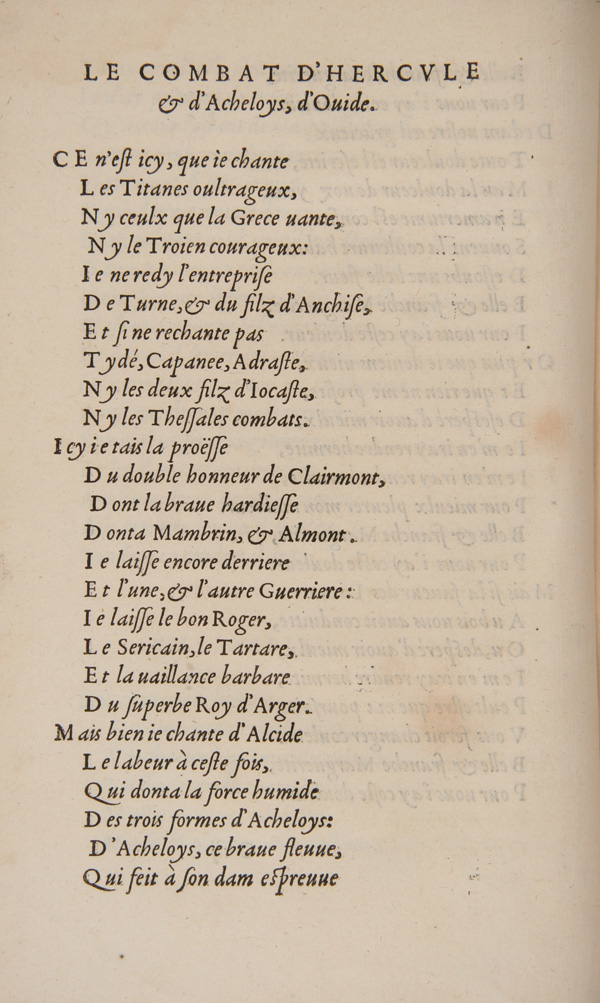 LE COMBAT D'HERCVLE
& d'Acheloys, d'Ouide.
CE n'eſt icy, que ie chante
Les Titanes oultrageux,
Ny ceulx que la Grece uante,
Ny le Troien courageux:
Ie ne redy l'entrepriſe
De Turne, & du filz d'Anchiſe,
Et ſi ne rechante pas
Tydé, Capanee, Adraſte,
Ny les deux filz d'Iocaſte,
Ny les Theſſales combats.
Icy ie tais la proëſſe
Du double honneur de Clairmont,
Dont la braue hardieſſe
Donta Mambrin, & Almont.
Ie laiſſe encore derriere
Et l'une, & l'autre Guerriere:
Ie laiſſe le bon Roger,
Le Sericain, le Tartare,
Et la uaillance barbare
Du ſuperbe Roy d'Arger.
Mais bien ie chante d'Alcide
Le labeur à ceſte fois,
Qui donta la force humide
Des trois formes d'Acheloys:
D'Acheloys, ce braue fleuue,
Qui feit à ſon dam eſpreuue